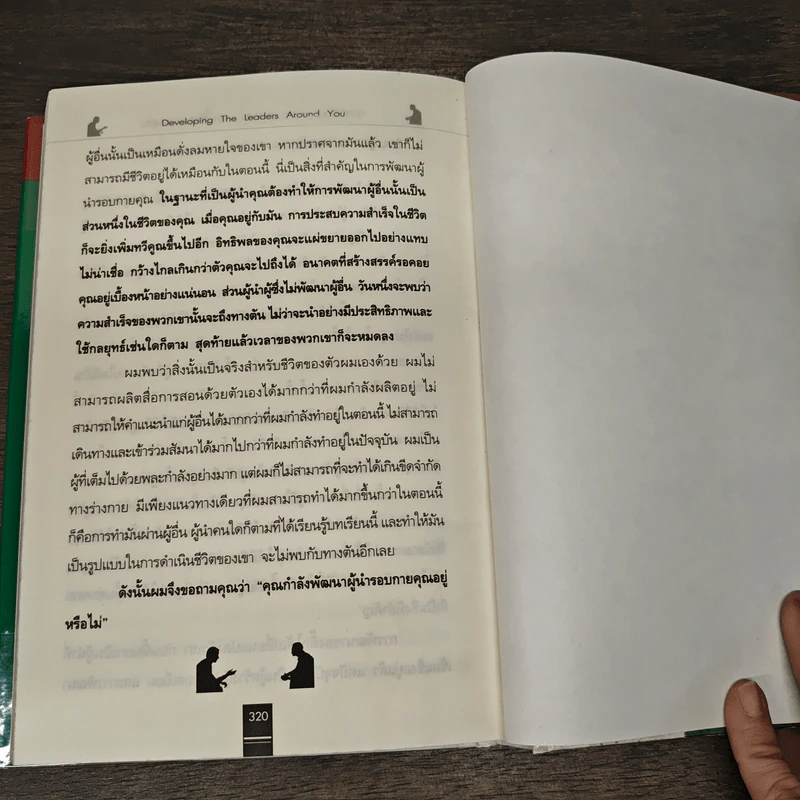 Developing The Leaders Around You
ผู้อื่นนั้นเป็นเหมือนดั่งลมหายใจของเขา หากปราศจากมันแล้ว เขาก็ไม่
สามารถมีชีวิตอยู่ได้เหมือนกับในตอนนี้ นี่เป็นสิ่งที่สำคัญในการพัฒนาผู้
นำรอบกายคุณ ในฐานะที่เป็นผู้นำคุณต้องทำให้การพัฒนาผู้อื่นนั้นเป็น
ส่วนหนึ่งในชีวิตของคุณ เมื่อคุณอยู่กับมัน การประสบความสำเร็จในชีวิต
ก็จะยิ่งเพิ่มทวีคูณขึ้นไปอีก อิทธิพลของคุณจะแผ่ขยายออกไปอย่างแทบ
ไม่น่าเชื่อ กว้างไกลเกินกว่าตัวคุณจะไปถึงได้ อนาคตที่สร้างสรรค์รอคอย
คุณอยู่เบื้องหน้าอย่างแน่นอน ส่วนผู้นำผู้ซึ่งไม่พัฒนาผู้อื่น วันหนึ่งจะพบว่า
ความสำเร็จของพวกเขานั้นจะถึงทางตัน ไม่ว่าจะนำอย่างมีประสิทธิภาพและ
ใช้กลยุทธ์เช่นใดก็ตาม สุดท้ายแล้วเวลาของพวกเขาก็จะหมดลง
ผมพบว่าสิ่งนั้นเป็นจริงสำหรับชีวิตของตัวผมเองด้วย ผมไม่
สามารถผลิตสื่อการสอนด้วยตัวเองได้มากกว่าที่ผมกำลังผลิตอยู่ ไม่
สามารถให้คำแนะนำแก่ผู้อื่นได้มากกว่าที่ผมกำลังทำอยู่ในตอนนี้ ไม่สามารถ
เดินทางและเข้าร่วมสัมนาได้มากไปกว่าที่ผมกำลังทำอยู่ในปัจจุบัน ผมเป็น
ผู้ที่เต็มไปด้วยพละกำลังอย่างมาก แต่ผมก็ไม่สามารถที่จะทำได้เกินขีดจำกัด
ทางร่างกาย มีเพียงแนวทางเดียวที่ผมสามารถทำได้มากขึ้นกว่าในตอนนี้
ก็คือการทำมันผ่านผู้อื่น ผู้นำคนใดก็ตามที่ได้เรียนรู้บทเรียนนี้ และทำให้มัน
เป็นรูปแบบในการดำเนินชีวิตของเขา จะไม่พบกับทางตันอีกเลย
ดังนั้นผมจึงขอถามคุณว่า “คุณกำลังพัฒนาผู้นำรอบกายคุณอยู่
หรือไม่”
320